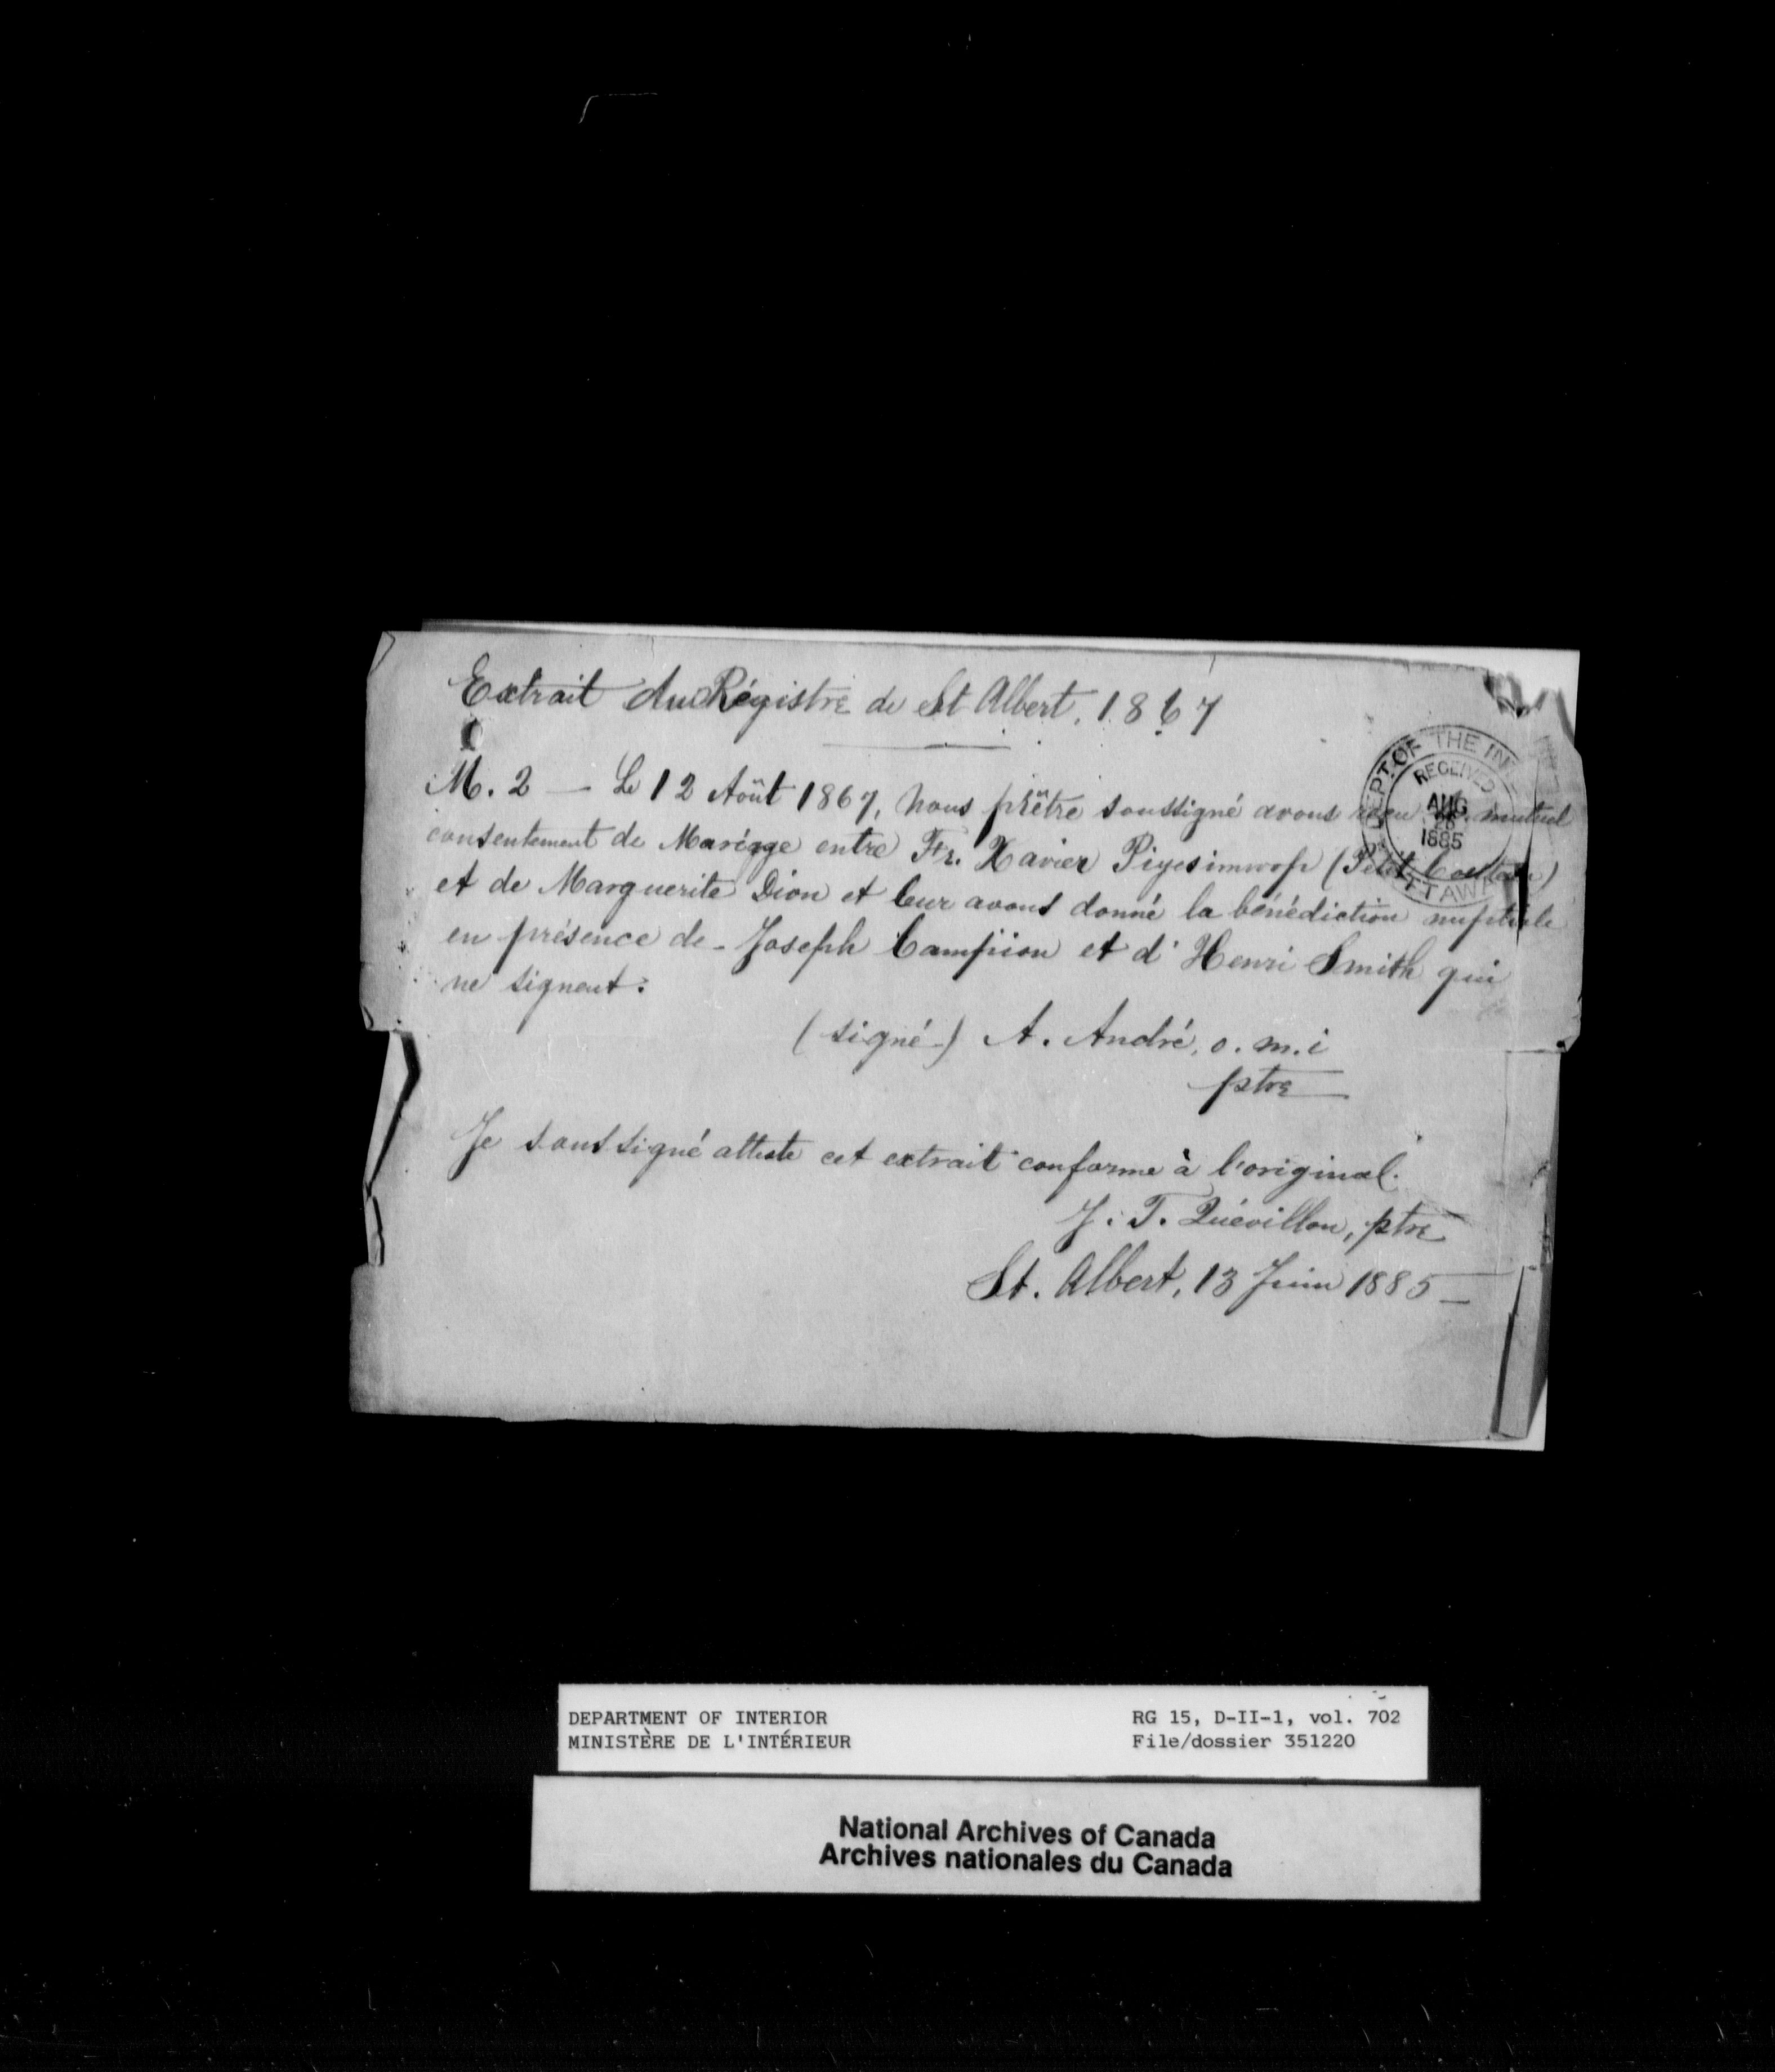 Extrait du Régistre de St Albert, 1867
M. 2 — Le 12 Août 1867, nous prêtre soussigné avons reçu le mutuel
consentement de Mariage entre Fr. Xavier Piyesimwop (Petit Couteau)
et de Marguerite Dion et leur avons donné la bénédiction nuptiale
en présence de - Joseph Campion et d'Henri Smith qui
ne signent.
(signé) A. André, o.m.i
ptre
Je soussigné atteste cet extrait conforme à l'original.
J. T. Quévillon, ptre
St. Albert, 13 Juin 1885 —
DEPT. OF THE INT
RECEIVED
AUG
26
1885
OTTAWA
DEPARTMENT OF INTERIOR
MINISTÈRE DE L'INTÉRIEUR
RG 15, D-II-1, vol. 702
File/dossier 351220
National Archives of Canada
Archives nationales du Canada